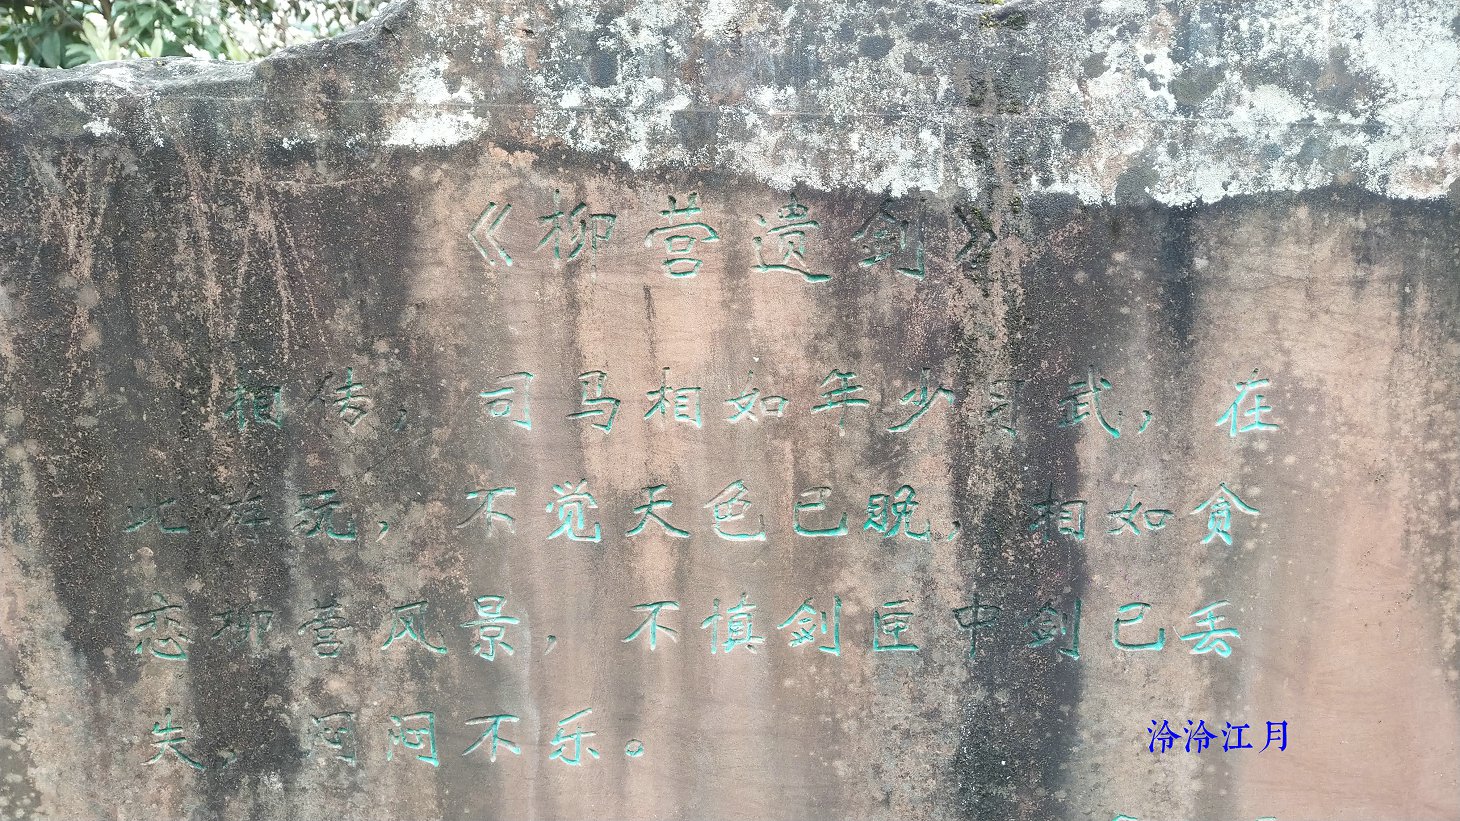 《柳营遗剑》
相传，司马相如年少习武，在
此游玩，不觉天色已晚，相如贪
恋柳营风景，不慎剑匣中剑已丢
失，闷闷不乐。
泠泠江月